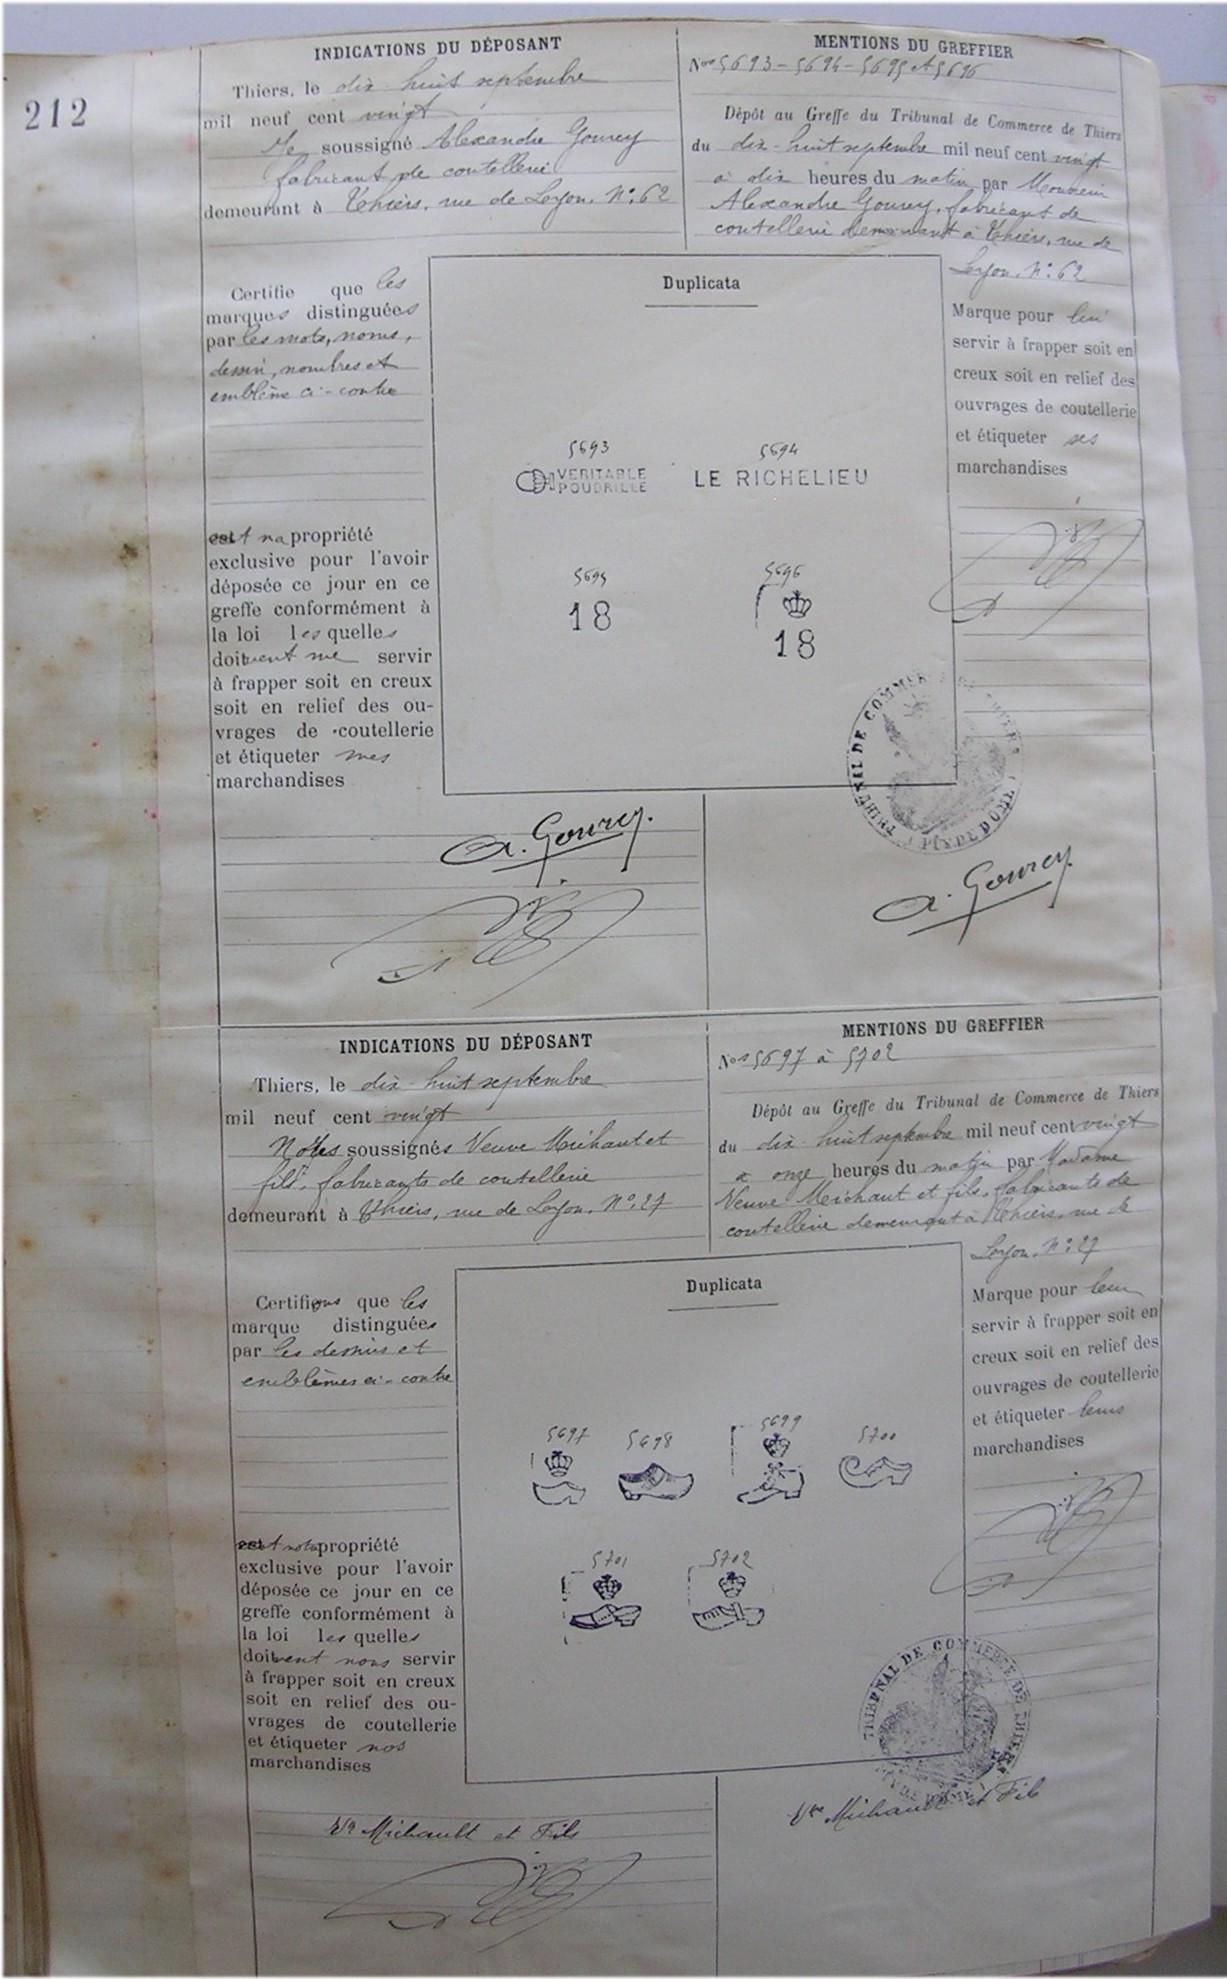 212
INDICATIONS DU DÉPOSANT
Thiers, le dix-huit septembre
mil neuf cent vingt
Je, soussigné Alexandre Gourey
fabricant de coutellerie
demeurant à Thiers, rue de Lyon, N° 62
MENTIONS DU GREFFIER
Nos 5693 - 5694 - 5695 et 5696
Dépôt au Greffe du Tribunal de Commerce de Thiers
du dix-huit septembre mil neuf cent vingt
à dix heures du matin par Monsieur
Alexandre Gourey, fabricant de
coutellerie demeurant à Thiers, rue de
Lyon, N° 62
Certifie que les
marques distinguées
par les mots, noms,
dessin, nombres et
emblème ci-contre
est ma propriété
exclusive pour l'avoir
déposée ce jour en ce
greffe conformément à
la loi lesquelles
doivent me servir
à frapper soit en creux
soit en relief des ou-
vrages de coutellerie
et étiqueter mes
marchandises
Duplicata
5693
VERITABLE
POUDRILLE
5694
LE RICHELIEU
5695
18
5696
18
Marque pour lui
servir à frapper soit en
creux soit en relief des
ouvrages de coutellerie
et étiqueter ses
marchandises
TRIBUNAL DE COMMERCE DE THIERS
PUY DE DOME
A. Gourey.
A. Gourey.
INDICATIONS DU DÉPOSANT
Thiers, le dix-huit septembre
mil neuf cent vingt
Nous soussignés Veuve Michaut et
fils, fabricants de coutellerie
demeurant à Thiers, rue de Lyon, N° 27
MENTIONS DU GREFFIER
Nos 5697 à 5702
Dépôt au Greffe du Tribunal de Commerce de Thiers
du dix-huit septembre mil neuf cent vingt
à onze heures du matin par Madame
Veuve Michaut et fils, fabricants de
coutellerie demeurant à Thiers, rue de
Lyon, N° 27
Certifions que les
marque distinguées
par les dessins et
emblèmes ci-contre
est notre propriété
exclusive pour l'avoir
déposée ce jour en ce
greffe conformément à
la loi lesquelles
doivent nous servir
à frapper soit en creux
soit en relief des ou-
vrages de coutellerie
et étiqueter nos
marchandises
Duplicata
5697
5698
5699
5700
5701
5702
Marque pour leur
servir à frapper soit en
creux soit en relief des
ouvrages de coutellerie
et étiqueter leurs
marchandises
TRIBUNAL DE COMMERCE DE THIERS
PUY DE DOME
Vve Michault et Fils
Vve Michault et Fils